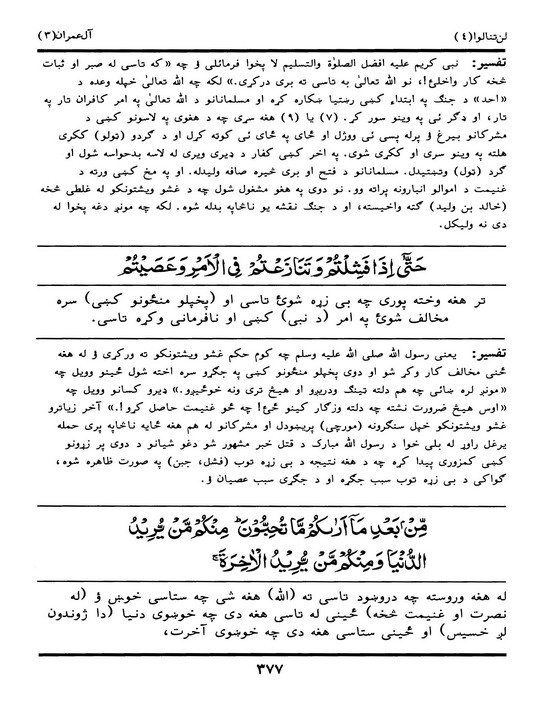 لن تنالوا (٤)
آل عمران (٣)
تفسیر: نبی کریم علیه افضل الصلوٰة والتسلیم لا پخوا فرمائلی ؤ چه «که تاسی له صبر او ثبات
څخه کار واخلئ!، نو الله تعالیٰ به تاسی ته بری درکړی.» لکه چه الله تعالیٰ خپله وعده د
«احد» د جنګ په ابتداء کښی رښتیا ښکاره کړه او مسلمانانو د الله تعالیٰ په امر کافران تار په
تار، او ډګر ئی په وینو سور کړ. (۷) یا (۹) هغه سړی چه د هغوی په لاسونو کښی د
مشرکانو بیرغ ؤ پرله پسی ئی ووژل او ځای په ځای ئی کوته کړل او د ګردو (ټولو) ککړی
هلته په وینو سری او ککړی شوی. په اخر کښی کفار د ډیری ویری له لاسه بدحواسه شول او
ګرد (ټول) وتښتیدل. مسلمانانو د فتح او بری څیره صافه ولیدله. او په مخ کښی ورته د
غنیمت د اموالو انبارونه پراته وو. نو دوی په هغو مشغول شول چه د غشو ویشتونکو له غلطی څخه
(خالد بن ولید) ګټه واخیسته، او د جنګ نقشه یو ناڅاپه بدله شوه. لکه چه مونږ دغه پخوا له
دی نه ولیکل.
حَتّٰۤی اِذَا فَشِلْتُمْ وَتَنَازَعْتُمْ فِی الْاَمْرِ وَعَصَیْتُمْ
تر هغه وخته پوری چه بی زړه شوئ تاسی او (پخپلو منځونو کښی) سره
مخالف شوئ په امر (د نبی) کښی او نافرمانی وکړه تاسی.
تفسیر: یعنی رسول الله صلی الله علیه وسلم چه کوم حکم غشو ویشتونکو ته ورکړی ؤ له هغه
ځنی مخالف کار وکړ شو او دوی پخپلو منځونو کښی په جګړو سره اخته شول ځینو وویل چه
«مونږ لره ښائی چه هم دلته ټینګ ودریږو او هیڅ تری ونه خوځیږو.» ډیرو کسانو وویل چه
«اوس هیڅ ضرورت نشته چه دلته وزګار کینو ځئ! چه څو غنیمت حاصل کړو!.» آخر زیاترو
غشو ویشتونکو خپل سنګرونه (مورچی) پریښودل او مشرکانو له هم هغه ځایه ناڅاپه پری حمله
یرغل راوړ له بلی خوا د رسول الله مبارک د قتل خبر مشهور شو دغو شیانو د دوی پر زړونو
کښی کمزوری پیدا کړه چه د هغه نتیجه د بی زړه توب (فشل، جبن) په صورت ظاهره شوه،
ګواکی د بی زړه توب سبب جګړه او د جګړی سبب عصیان ؤ.
مِّنْۢ بَعْدِ مَاۤ اَرٰىكُمْ مَّا تُحِبُّوْنَ ؕ مِنْكُمْ مَّنْ یُّرِیْدُ
الدُّنْیَا وَمِنْكُمْ مَّنْ یُّرِیْدُ الْاٰخِرَةَ ۚ
له هغه وروسته چه دروښود تاسی ته (الله) هغه شی چه ستاسی خوښ ؤ (له
نصرت او غنیمت څخه) ځینی له تاسی هغه دی چه خوښوی دنیا (دا ژوندون
لږ خسیس) او ځینی ستاسی هغه دی چه خوښوی آخرت،
۳۷۷